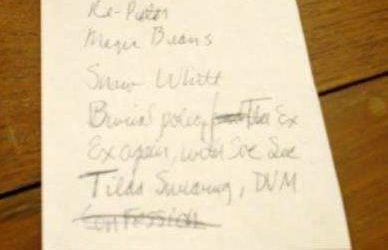 Re-Puter
Magic Beans
Snow White
Burial policy The Ex
Ex again, with Sue Sue
Tilda Swearing, DVM
Confession